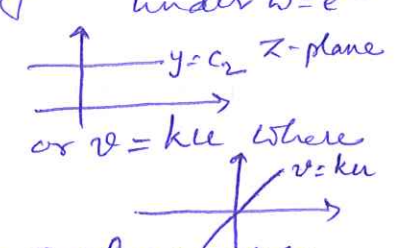 under w = e
y = c₂ z-plane
or v = ku where
v = ku